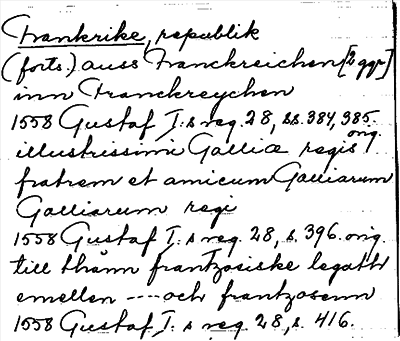 Frankrike, republik
(forts.) auss Franckreichen [2 ggr]
inn Franckreychen
1558 Gustaf I:s reg. 28, ss. 384, 385.
orig.
illustrissimi Galliæ regis
fratrem et amicum Galliarum
Galliarum regi
1558 Gustaf I:s reg. 28, s. 396. orig.
till thånn frantzosiske legathr
emellen ---- och frantzosenn
1558 Gustaf I:s reg. 28, s. 416.